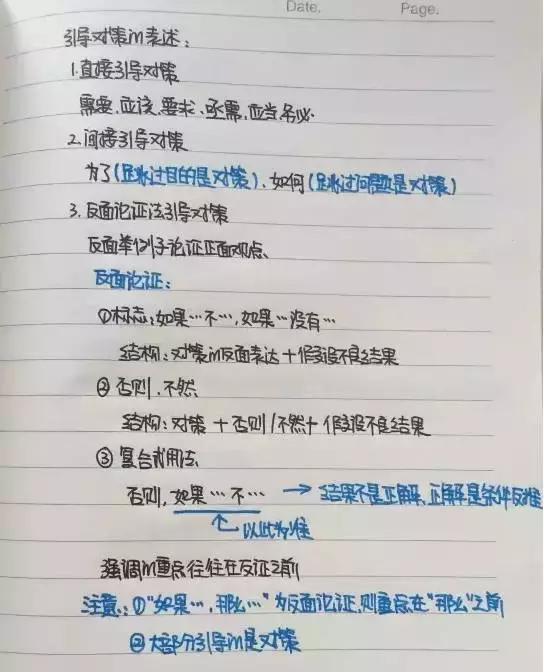 Date. Page.
引导对策的表述：
1.直接引导对策
需要、应该、要求、亟需、应当、务必.
2.间接引导对策
为了(跳过目的是对策)、如何(跳过问题是对策)
3.反面论证法引导对策
反面举例子论证正面观点、
反面论证：
①标志：如果…不…，如果…没有…
结构：对策的反面表达＋假设不良结果
②否则、不然
结构：对策＋否则/不然＋假设不良结果
③复合式用法
否则，如果…不… → 结果不是正解，正解是条件反推
以此为准
强调的重点往往在反证之前
注意：①"如果…，那么…"为反面论证，则重点在"那么"之前
②大部分引导的是对策